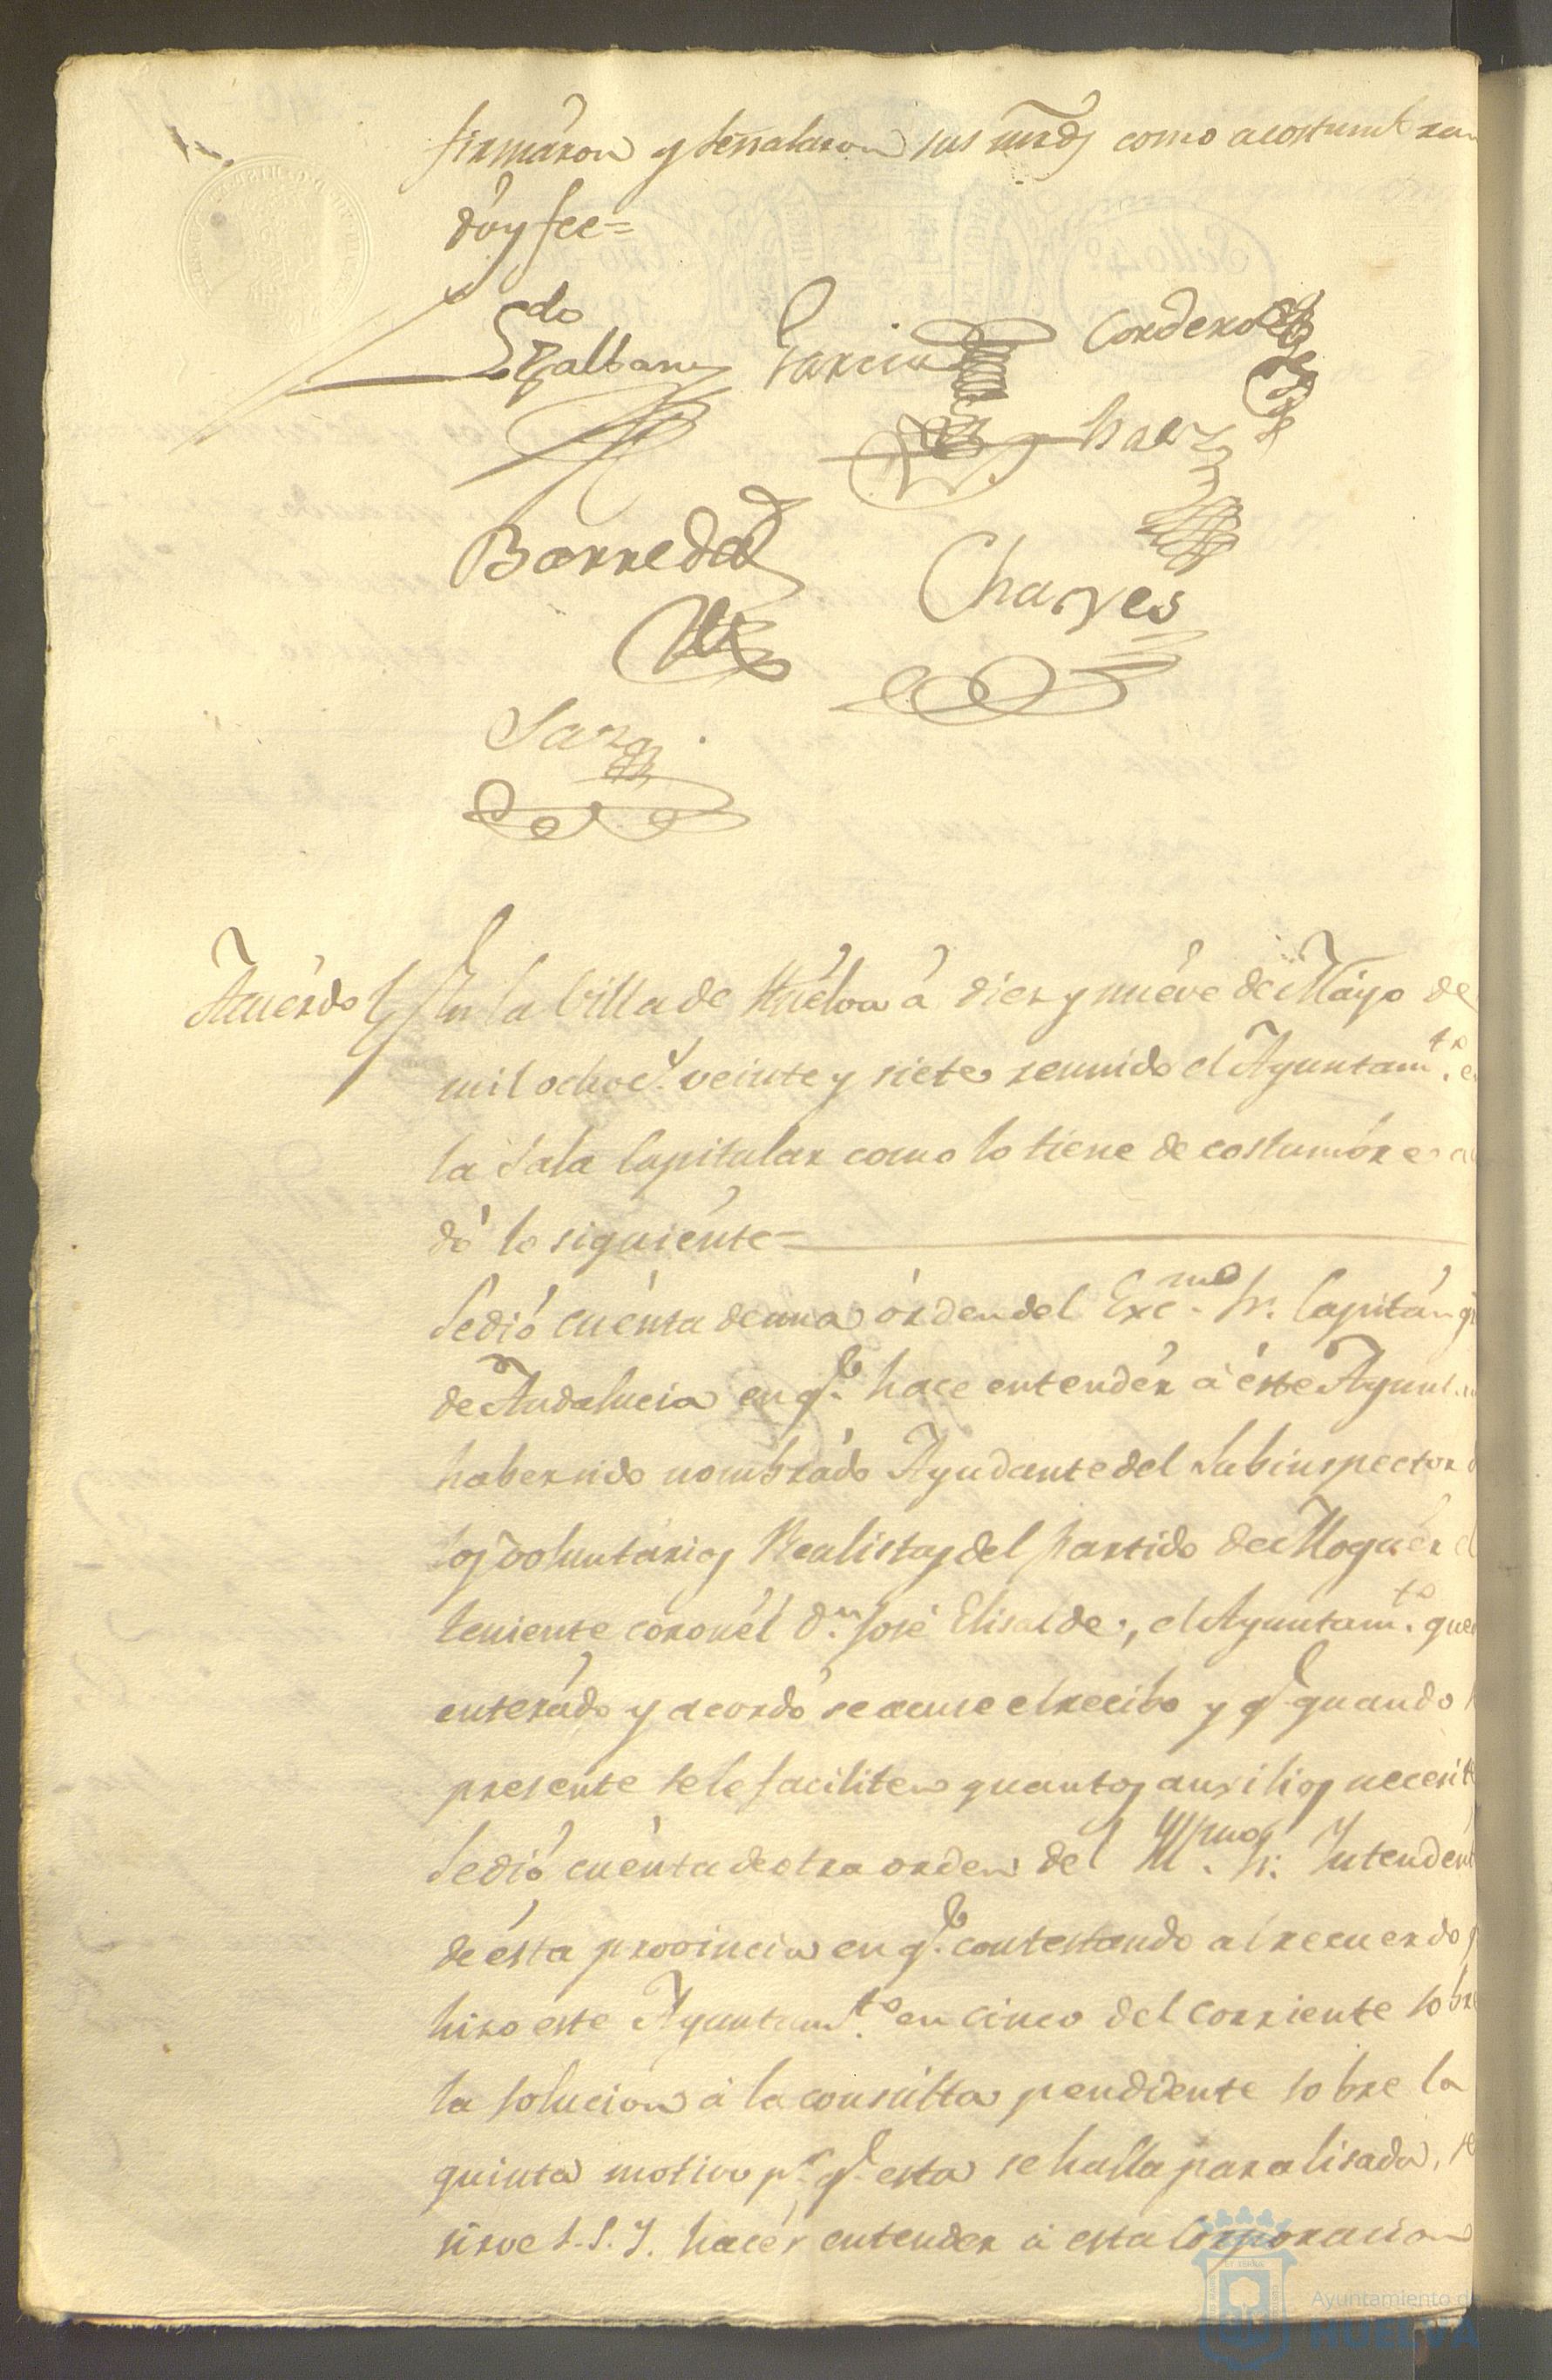 firmáron y señalaron sus mrds como acostumbran
dóy fee=
Ldo
Garcia Cordero
Barreda Charves
Acuérdo En la Villa de Huélva á diez y nuéve de Máyo de
mil ochoc.s veinte y siete reunido el Ayuntam.to en
la Sala Capitular como lo tiene de costumbre a
dó lo siguiénte=
Se dió cuénta de una órden del Exc.mo Sr. Capitán
de Andalucia en q.e hace entendér á éste Ayunt
haber sido nombrádo Ayudante del Subinspector
los voluntários Realistas del partido de Moguér el
teniente coronél D.n José Elisalde, el Ayuntam.to
enterádo y acordó se acuse el recibo y q.e quando
presente se le faciliten quantos auxilios necesite
Se dió cuénta de otra orden del Ill.mo Sr. Intendent
de ésta provincia en q.e contestando al recuerdo
hizo este Ayuntam.to en cinco del corriente sobre
la solucion á la consulta pendiente sobre la
quinta motivo p.r q.e esta se halla paralisada, se
sirve S.S.Y. hacér entender á esta Corporacion
Ayuntamiento de
HUELVA